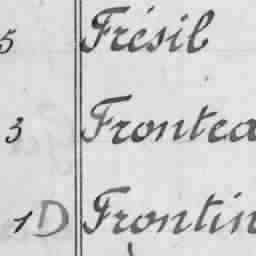 5 Frésil
3 Frontea
1D Frontin